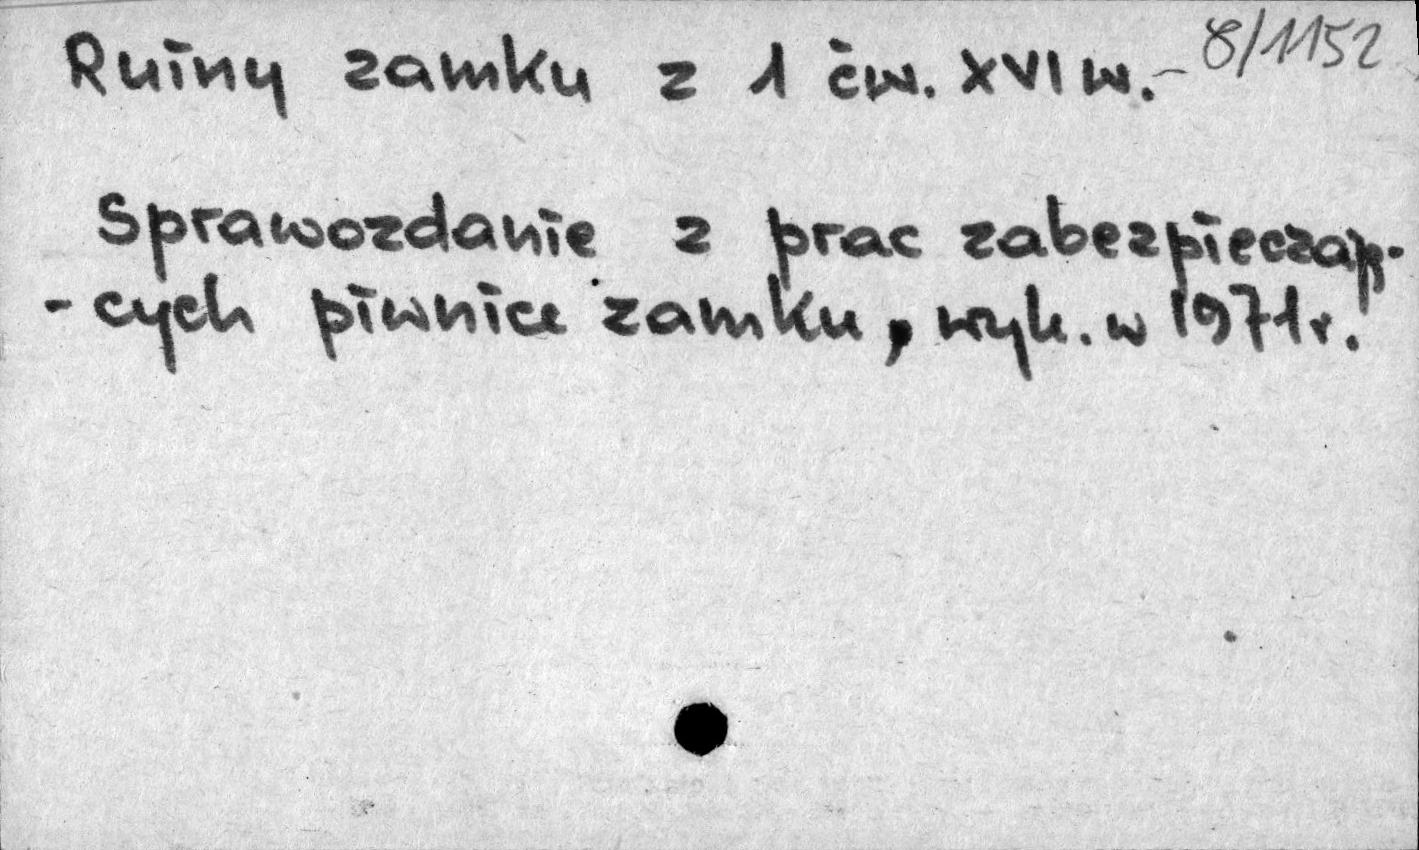 Ruiny zamku z 1 ćw. XVI w. – 8/1152
Sprawozdanie z prac zabezpieczają-
- cych piwnice zamku, wyk. w 1971 r.